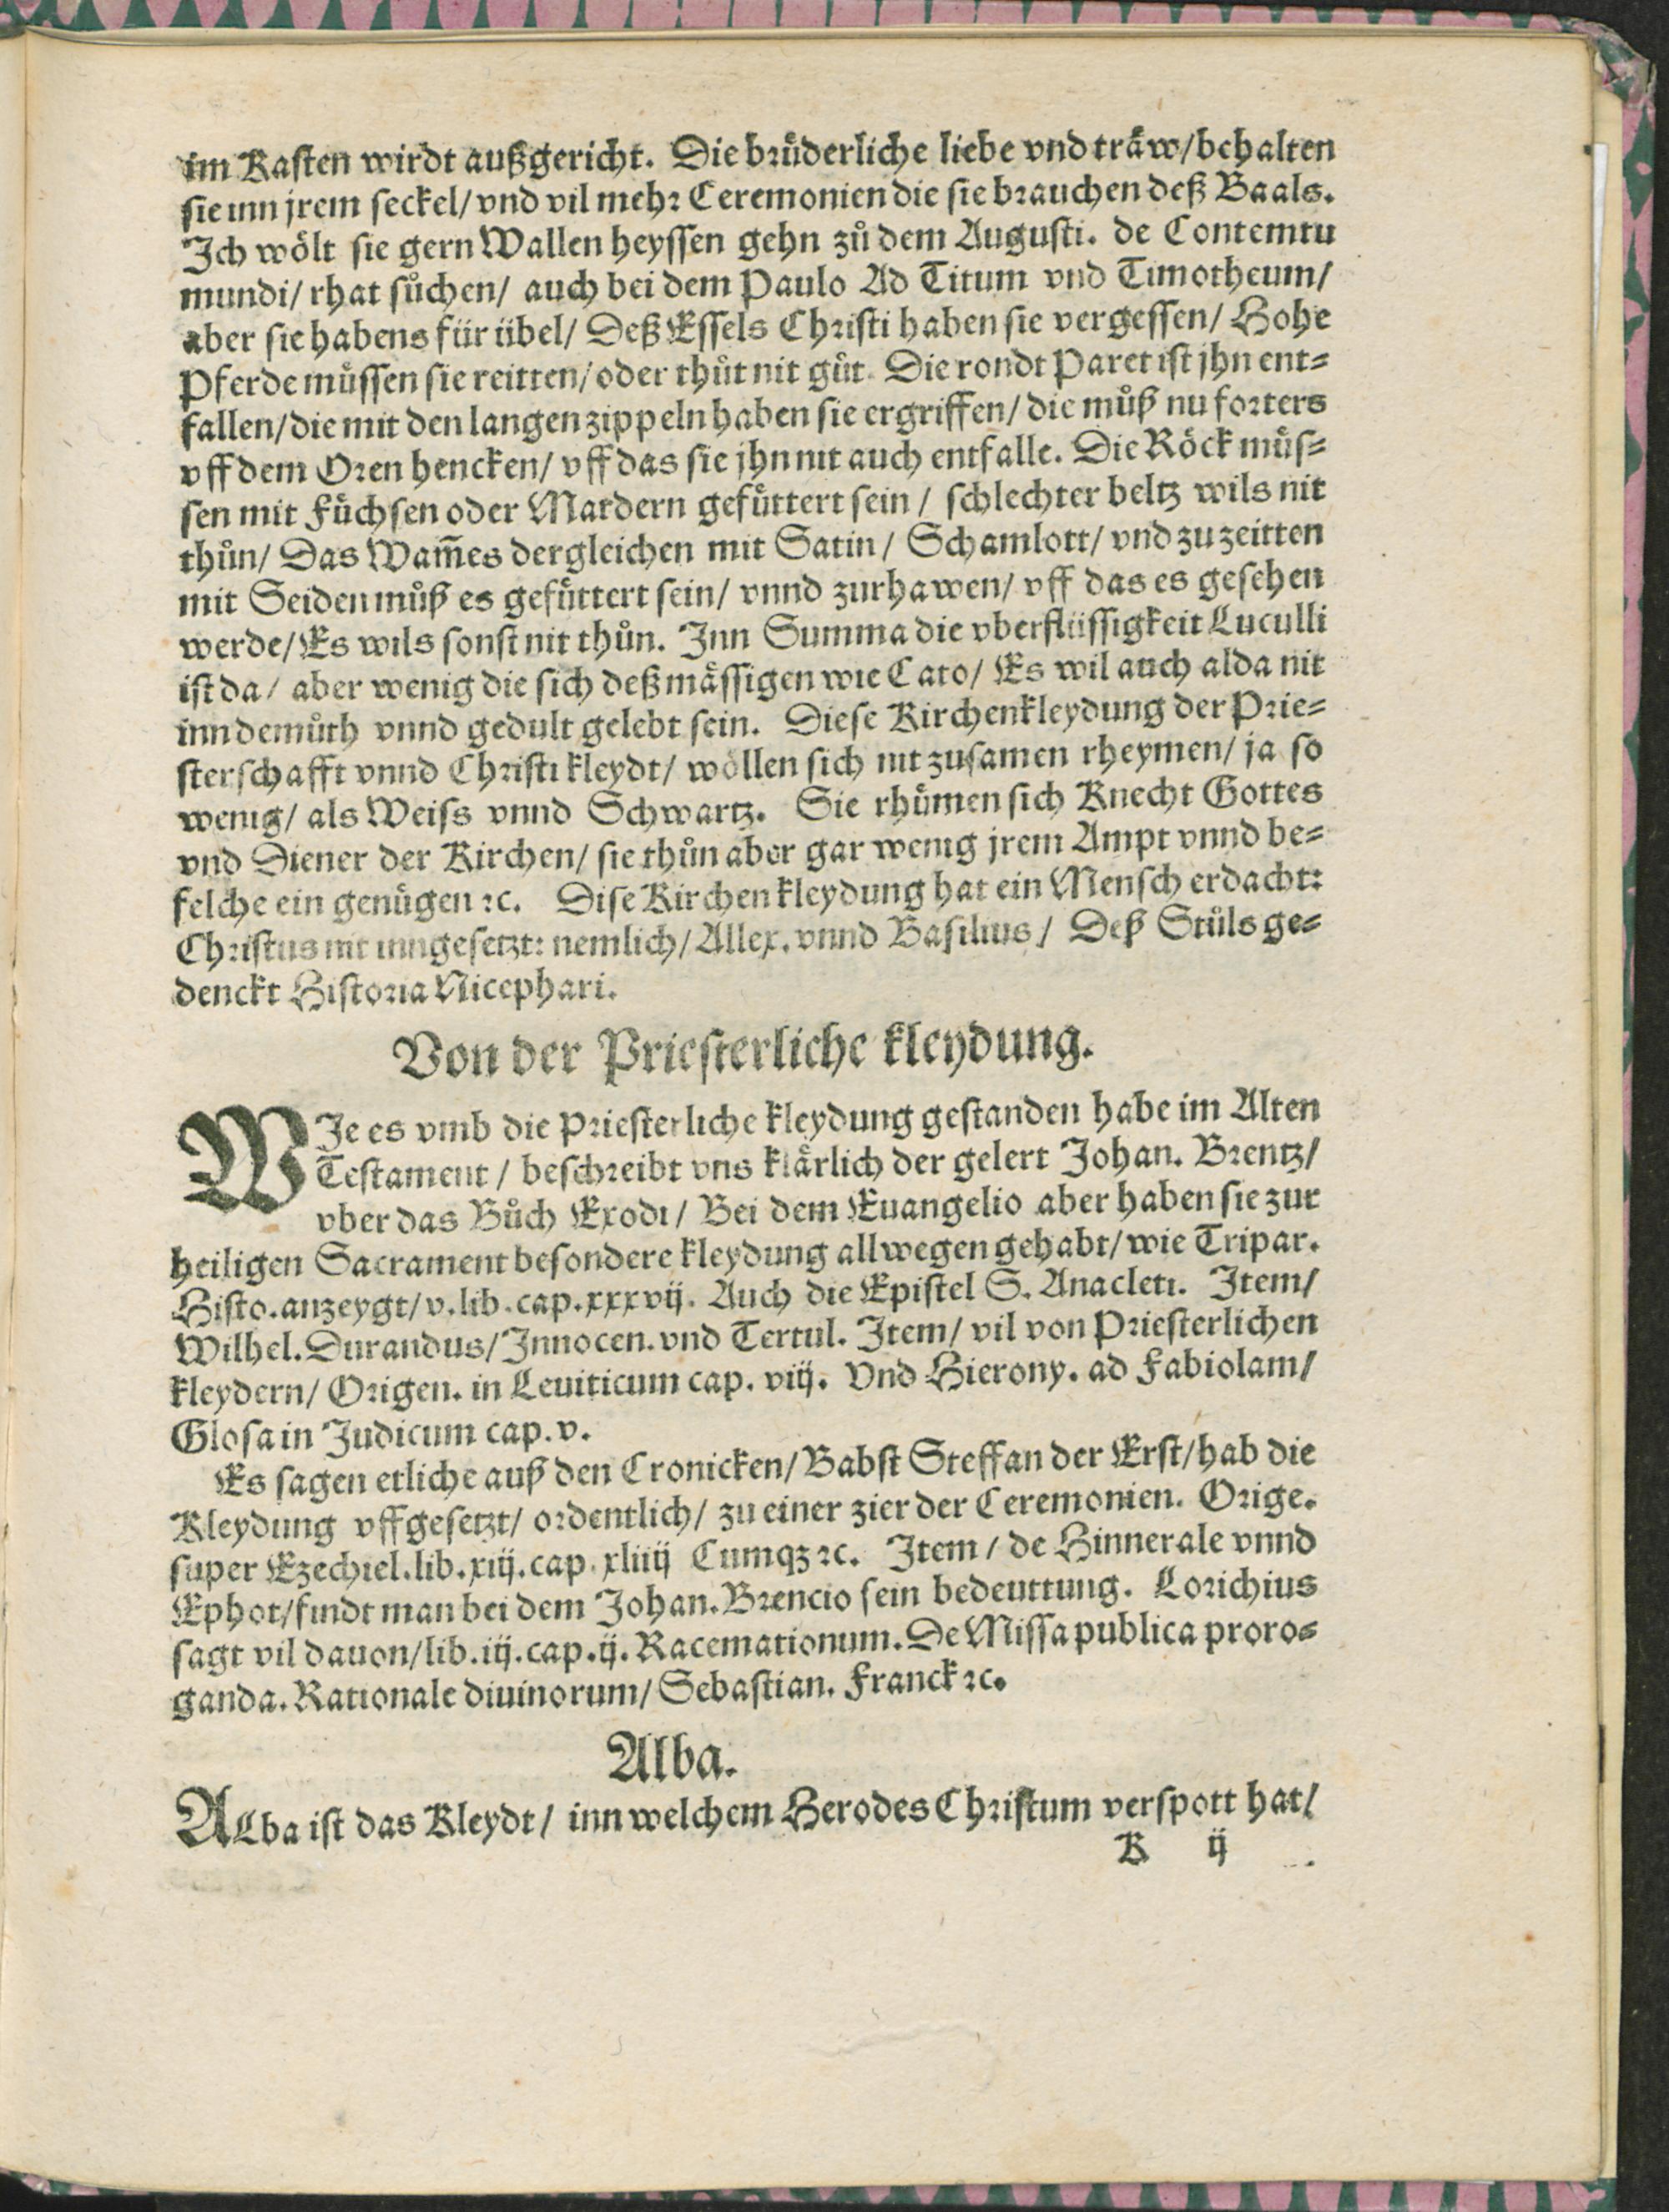 im Kasten wirdt außgericht. Die bruͤderliche liebe vnd traͤw/behalten
sie inn jrem seckel/vnd vil mehr Ceremonien die sie brauchen deß Baals.
Ich woͤlt sie gern Wallen heyssen gehn zuͦ dem Augusti. de Contemtu
mundi/ rhat suͦchen/ auch bei dem Paulo Ad Titum vnd Timotheum/
aber sie habens für übel/ Deß Essels Christi haben sie vergessen/ Hohe
Pferde muͤssen sie reitten/oder thuͦt nit guͦt. Die rondt Paret ist jhn ent=
fallen/die mit den langen zippeln haben sie ergriffen/ die muͦß nu forters
vff dem Oren hencken/ vff das sie jhn nit auch entfalle. Die Roͤck muͤs=
sen mit Fuͤchsen oder Mardern gefuͤttert sein/ schlechter beltz wils nit
thuͦn/ Das Wam̄es dergleichen mit Satin/ Schamlott/ vnd zu zeitten
mit Seiden muͦß es gefuͤttert sein/ vnnd zurhawen/ vff das es gesehen
werde/Es wils sonst nit thuͦn. Inn Summa die vberflüssigkeit Luculli
ist da/ aber wenig die sich deß maͤssigen wie Cato/ Es wil auch alda nit
inn demuͦth vnnd gedult gelebt sein. Diese Kirchenkleydung der Prie=
sterschafft vnnd Christi kleydt/ woͤllen sich nit zusamen rheymen/ ja so
wenig/ als Weiss vnnd Schwartz. Sie rhuͤmen sich Knecht Gottes
vnd Diener der Kirchen/ sie thuͦn aber gar wenig jrem Ampt vnnd be=
felche ein genuͤgen ꝛc. Dise Kirchen kleydung hat ein Mensch erdacht:
Christus nit inngesetzt: nemlich/ Allex. vnnd Basilius/ Deß Stuͦls ge=
denckt Historia Nicephari.
Von der Priesterliche kleydung.
WIe es vmb die Priesterliche kleydung gestanden habe im Alten
Testament/ beschreibt vns klaͤrlich der gelert Johan. Brentz/
vber das Buͦch Exodi/ Bei dem Euangelio aber haben sie zur
heiligen Sacrament besondere kleydung allwegen gehabt/wie Tripar.
Histo. anzeygt/ v. lib. cap. xxxvij. Auch die Epistel S. Anacleti. Item/
Wilhel. Durandus/ Innocen. vnd Tertul. Item/ vil von Priesterlichen
kleydern/ Origen. in Leuiticum cap. viij. Vnd Hierony. ad Fabiolam/
Glosa in Judicum cap. v.
Es sagen etliche auß den Cronicken/Babst Steffan der Erst/hab die
Kleydung vffgesetzt/ ordentlich/ zu einer zier der Ceremonien. Orige.
super Ezechiel. lib. xiij. cap. xliiij Cumqꝫ ꝛc. Item/ de Hinnerale vnnd
Ephot/findt man bei dem Johan. Brencio sein bedeuttung. Lorichius
sagt vil dauon/lib. iij. cap. ij. Racemationum. De Missa publica proro=
ganda. Rationale diuinorum/ Sebastian. Franck ꝛc.
Alba.
ALba ist das Kleydt/ inn welchem Herodes Christum verspott hat/
K ij